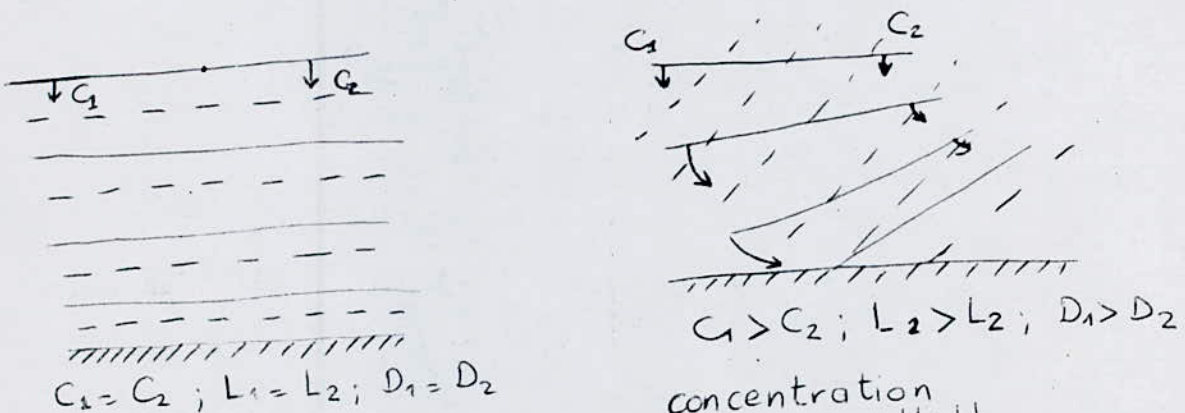 C₁ C₂
C₁ C₂
C₁ = C₂ ; L₁ = L₂ ; D₁ = D₂
C₁ > C₂ ; L₂ > L₂ ; D₁ > D₂
concentration